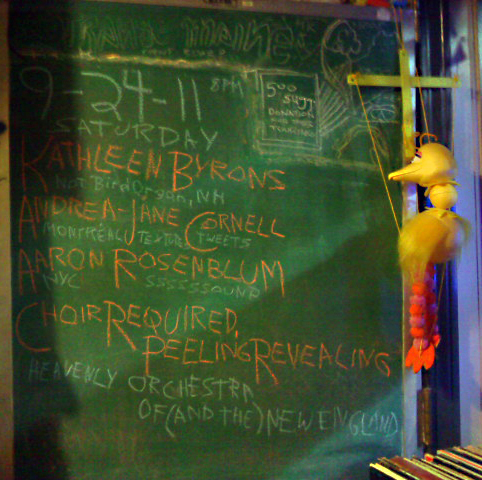 9-24-11 8PM
SATURDAY
500
SUJT
DONATION
TOURING
KATHLEEN BYRONS
NOT Bird Organ, NH
ANDREA-JANE CORNELL
MONTRÉAL TEXTURE TWEETS
AARON ROSENBLUM
NYC SSSSSSOUND
CHOIR REQUIRED,
PEELING REVEALING
HEAVENLY ORCHESTRA
OF (AND THE) NEW ENGLAND